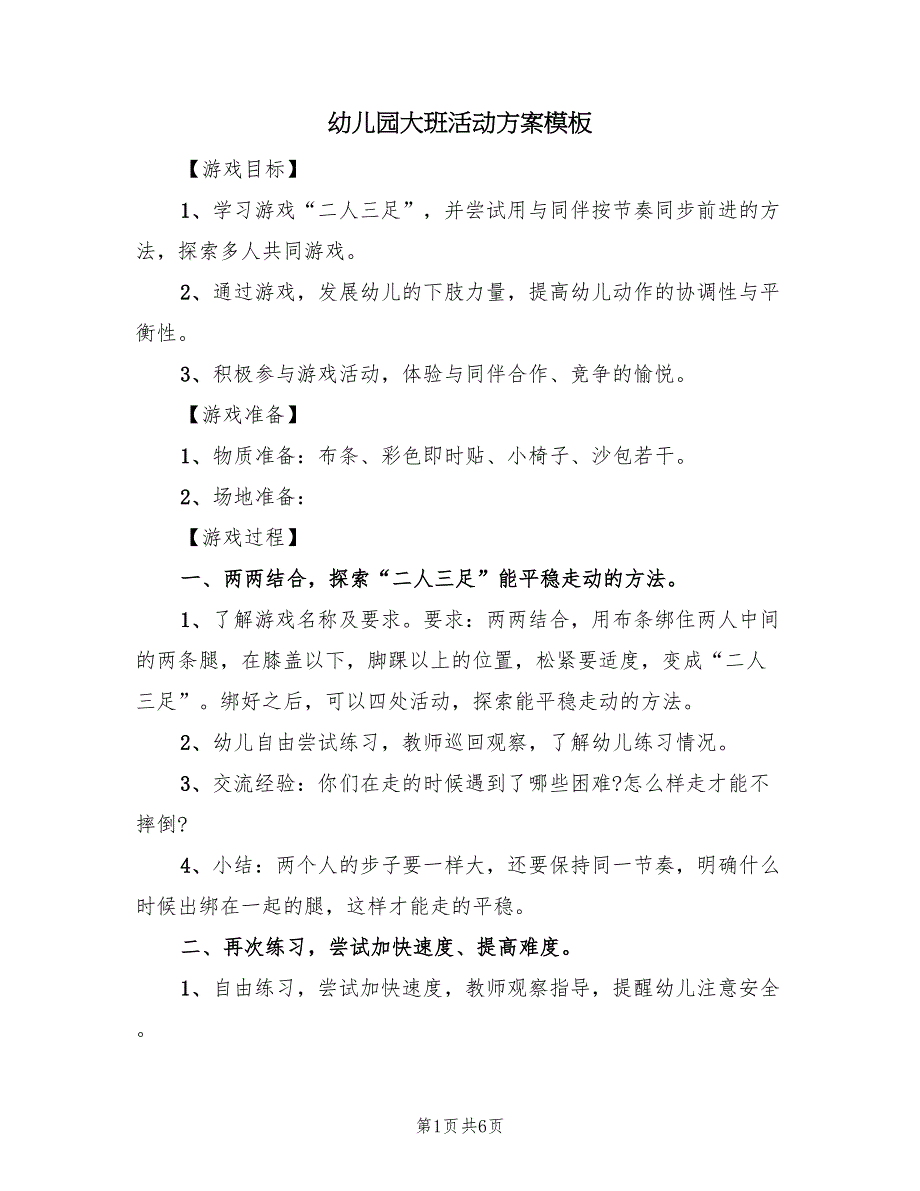 幼儿园大班活动方案模板
【游戏目标】
1、学习游戏“二人三足”，并尝试用与同伴按节奏同步前进的方
法，探索多人共同游戏。
2、通过游戏，发展幼儿的下肢力量，提高幼儿动作的协调性与平
衡性。
3、积极参与游戏活动，体验与同伴合作、竞争的愉悦。
【游戏准备】
1、物质准备：布条、彩色即时贴、小椅子、沙包若干。
2、场地准备：
【游戏过程】
一、两两结合，探索“二人三足”能平稳走动的方法。
1、了解游戏名称及要求。要求：两两结合，用布条绑住两人中间
的两条腿，在膝盖以下，脚踝以上的位置，松紧要适度，变成“二人
三足”。绑好之后，可以四处活动，探索能平稳走动的方法。
2、幼儿自由尝试练习，教师巡回观察，了解幼儿练习情况。
3、交流经验：你们在走的时候遇到了哪些困难?怎么样走才能不
摔倒?
4、小结：两个人的步子要一样大，还要保持同一节奏，明确什么
时候出绑在一起的腿，这样才能走的平稳。
二、再次练习，尝试加快速度、提高难度。
1、自由练习，尝试加快速度，教师观察指导，提醒幼儿注意安全
。
第1页 共6页